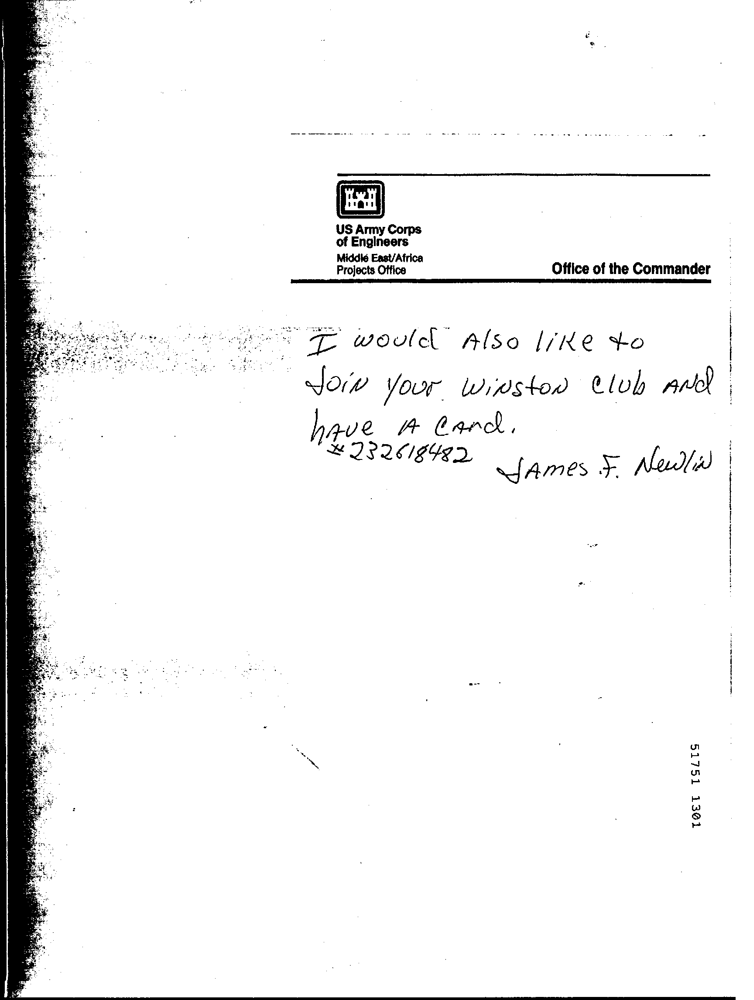 US Army Corps
of Engineers
Middle East/Africa
Projects Office
Office of the Commander
I would Also like to
Join your Winston Club AND
have A CArd.
#232618482
JAmes F. Newlin
51751 1301